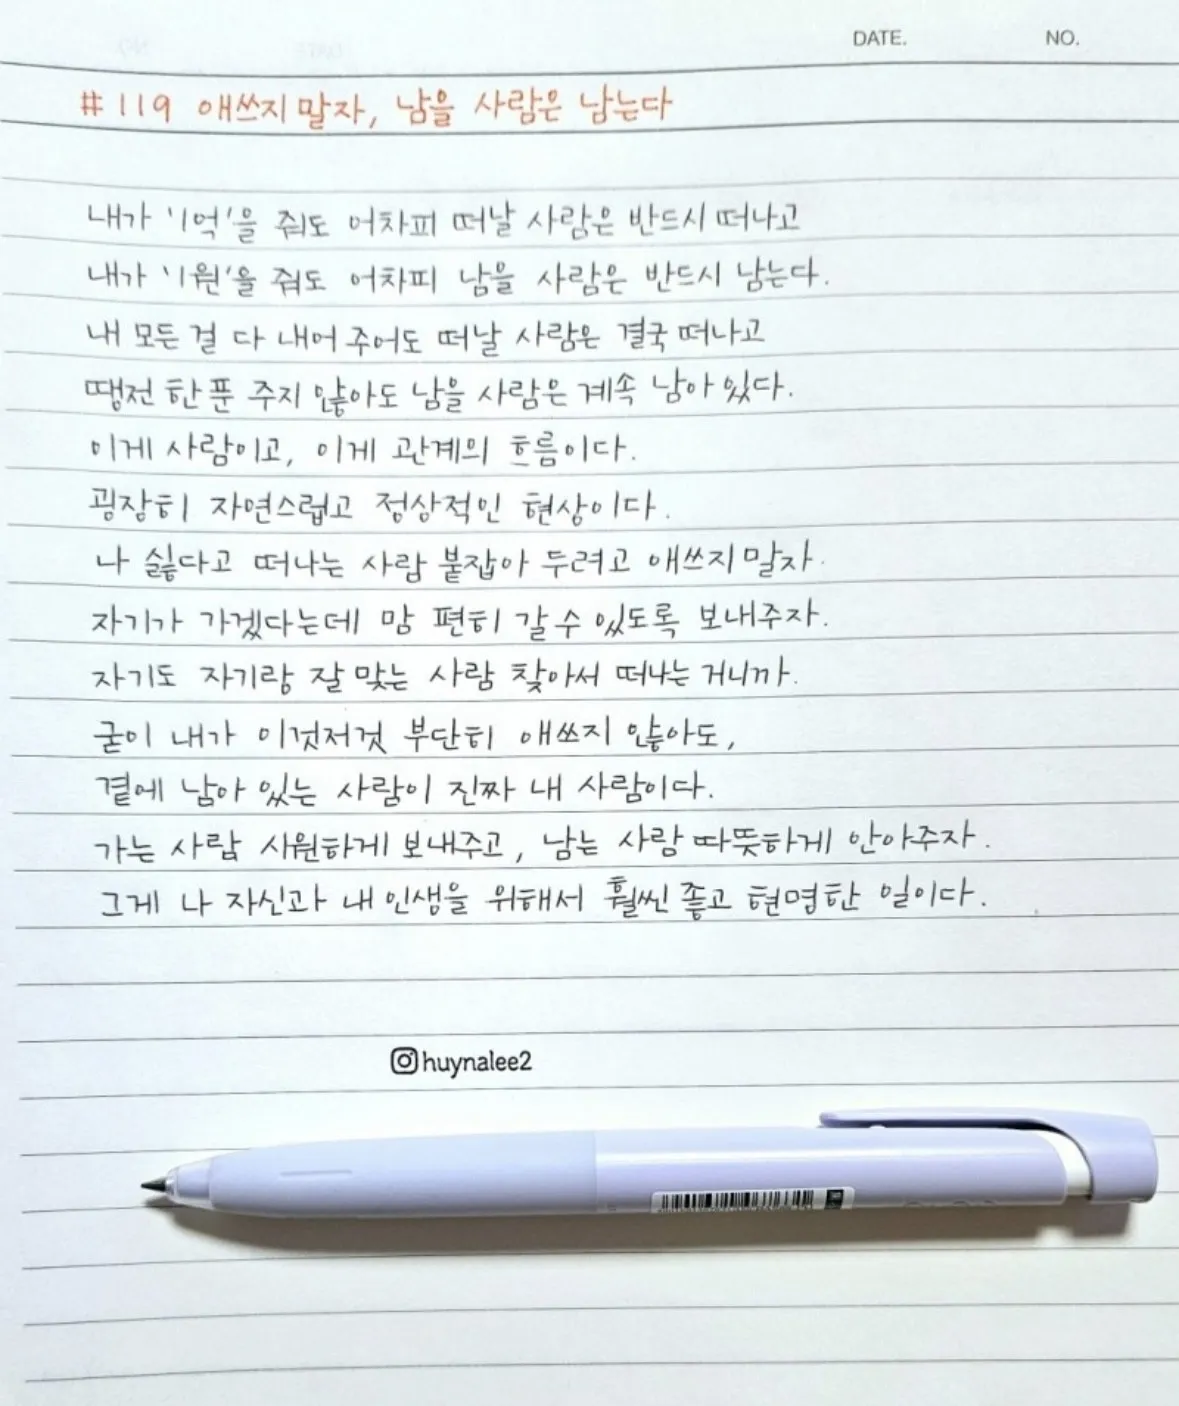 DATE. NO.
#119 애쓰지 말자, 남을 사람은 남는다
내가 '1억'을 줘도 어차피 떠날 사람은 반드시 떠나고
내가 '1원'을 줘도 어차피 남을 사람은 반드시 남는다.
내 모든 걸 다 내어 주어도 떠날 사람은 결국 떠나고
땡전 한 푼 주지 않아도 남을 사람은 계속 남아 있다.
이게 사람이고, 이게 관계의 흐름이다.
굉장히 자연스럽고 정상적인 현상이다.
나 싫다고 떠나는 사람 붙잡아 두려고 애쓰지 말자.
자기가 가겠다는데 맘 편히 갈 수 있도록 보내주자.
자기도 자기랑 잘 맞는 사람 찾아서 떠나는 거니까.
굳이 내가 이것저것 부단히 애쓰지 않아도,
곁에 남아 있는 사람이 진짜 내 사람이다.
가는 사람 시원하게 보내주고, 남는 사람 따뜻하게 안아주자.
그게 나 자신과 내 인생을 위해서 훨씬 좋고 현명한 일이다.
huynalee2